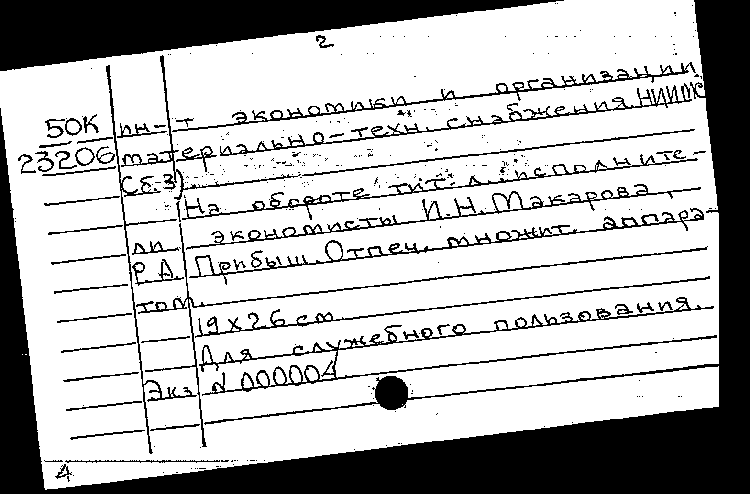 2
50К ин-т экономики и организации
23206 материально-техн. снабжения. НИИМС
Сб. 3).
На обороте тит. л. исполните-
ли экономисты И.Н. Макарова,
Р.А. Прибыш. Отпеч. множит. аппара-
том.
19х26 см.
Для служебного пользования.
Экз. N 000004
4